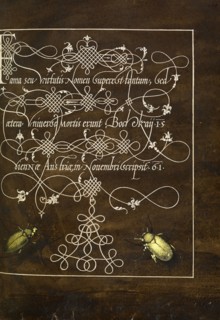 Fama seu Virtutis Nomen superest tantum, sed
cætera Universa Mortis erunt
Viennæ Austriæ, m Novembri scripsit 61.